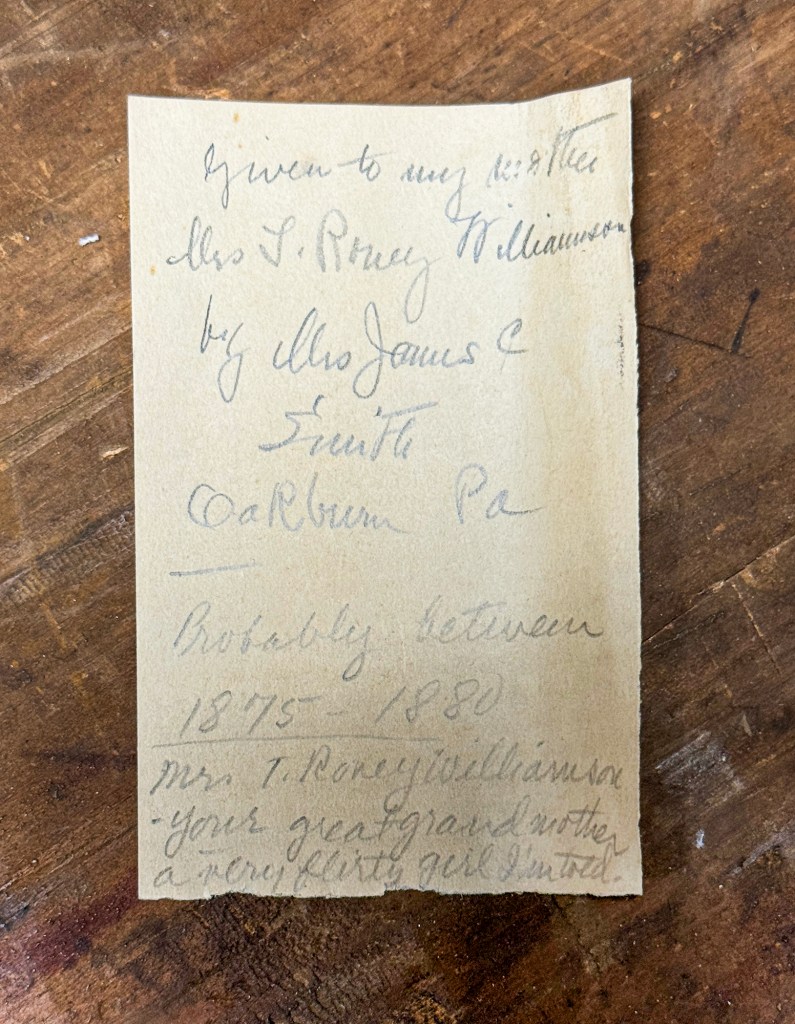 Given to my mother
Mrs T. Roney Williamson
by Mrs James C
Smith
Oakburn Pa
Probably between
1875 - 1880
Mrs. T. Roney Williamson
- your great grandmother
a very flirty girl I'm told.